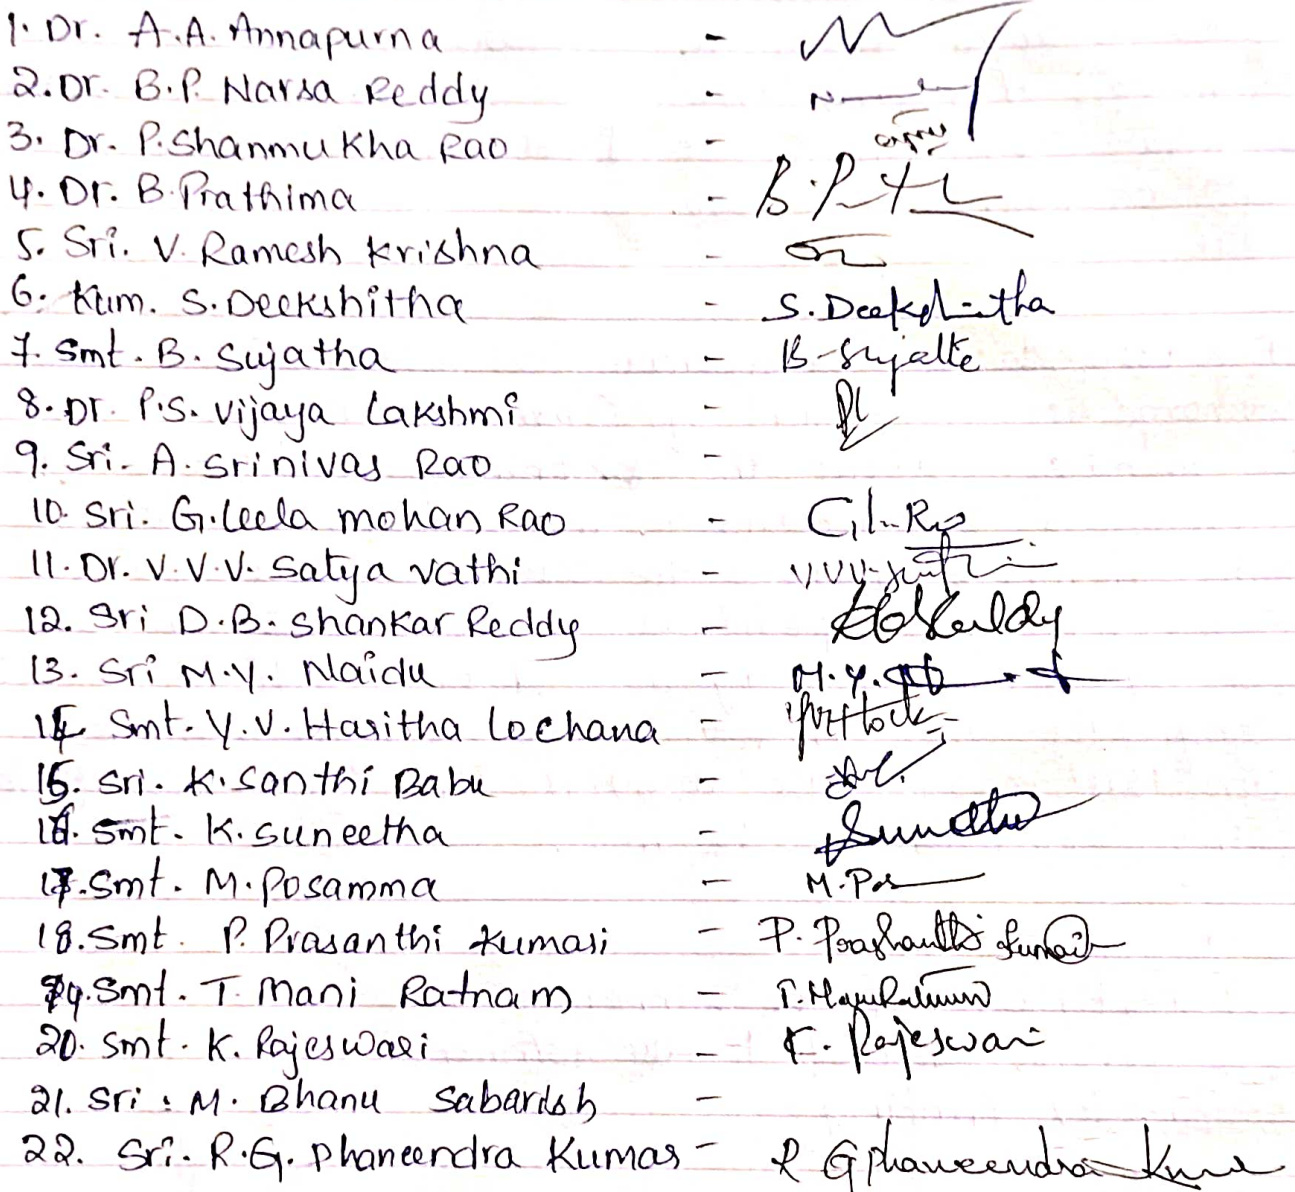 1. Dr. A.A. Annapurna -
2. Dr. B.P. Narsa Reddy -
3. Dr. P. Shanmukha Rao -
4. Dr. B. Prathima -
5. Sri. V. Ramesh Krishna -
6. Kum. S. Deekshitha - S. Deekshitha
7. Smt. B. Sujatha - B. Sujatha
8. Dr. P.S. Vijaya Lakshmi -
9. Sri. A. Srinivas Rao -
10. Sri. G. Leela mohan Rao -
11. Dr. V.V.V. Satya vathi - V.V.V.
12. Sri D.B. Shankar Reddy -
13. Sri M.Y. Naidu - M.Y.
14. Smt. Y.V. Haritha Lochana -
15. Sri. K. Santhi Babu -
16. Smt. K. Suneetha - Suneetha
17. Smt. M. Posamma - M. Pos
18. Smt. P. Prasanthi Kumari - P. Prashanthi Kumari
19. Smt. T. Mani Ratnam - T. Mani Ratnam
20. Smt. K. Rajeswari - K. Rajeswari
21. Sri. M. Bhanu Sabarish -
22. Sri. R.G. Phaneendra Kumar - R G Phaneendra Kumar